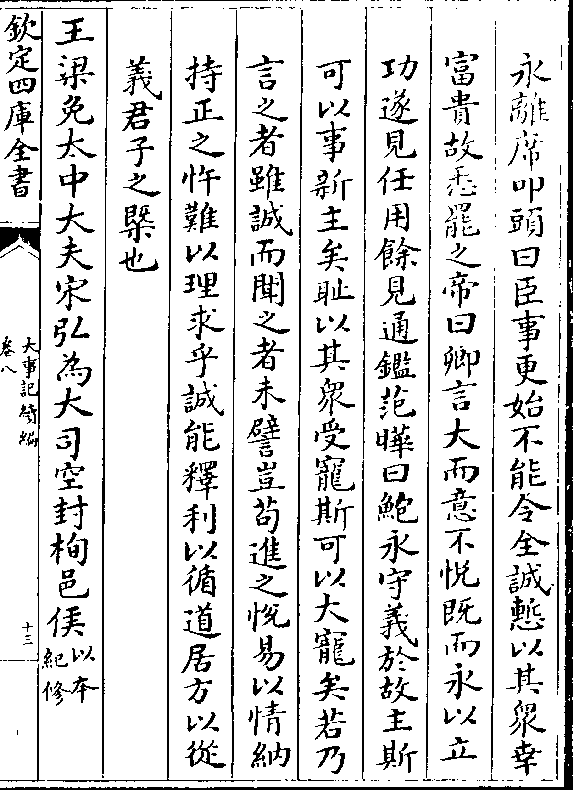 永離席叩頭曰臣事更始不能令全誠慙以其衆幸
富貴故悉罷之帝曰卿言大而意不悅既而永以立
功遂見任用餘見通鑑范曄曰鮑永守義於故主斯
可以事新主矣恥以其衆受寵斯可以大寵矣若乃
言之者雖誠而聞之者未譬豈苟進之悅易以情納
持正之忤難以理求乎誠能釋利以循道居方以從
義君子之槩也
王梁免太中大夫宋弘為大司空封栒邑侯以本
紀修
欽定四庫全書
大事記續編
卷八
十三